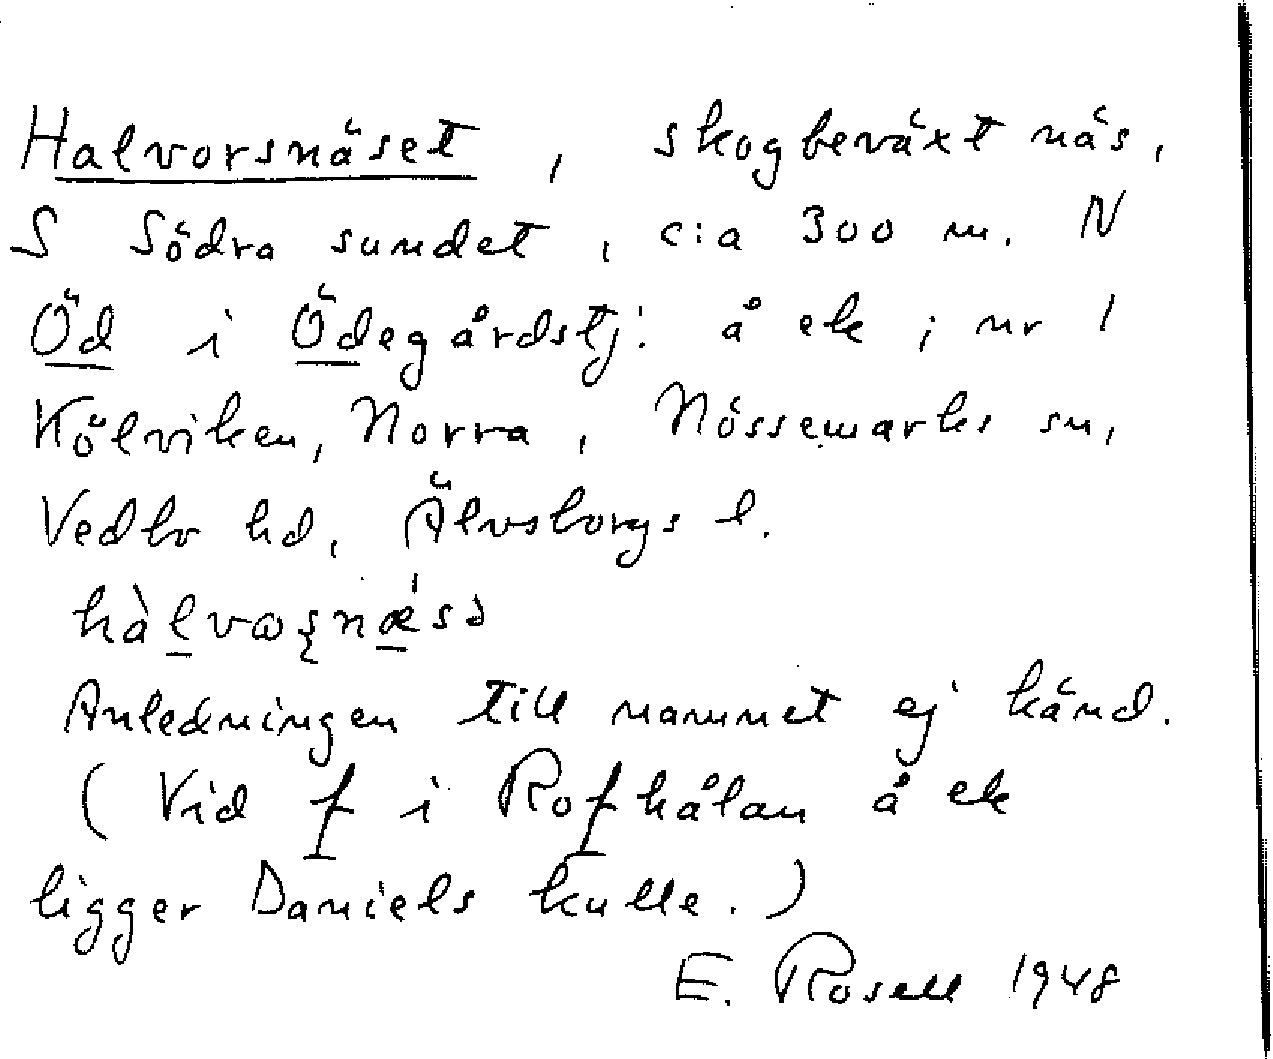 Halvorsnäset, skogbeväxt näs,
S Södra sundet, c:a 300 m. N
Öd i Ödegårdstj: å ek; nr 1
Kölviken, Norra, Nössemarks sn,
Vedbo hd, Älvsborgs l.
Anledningen till namnet ej känd.
(Vid f i Rofhålan å ek
ligger Daniels kulle.)
E. Rosell 1948